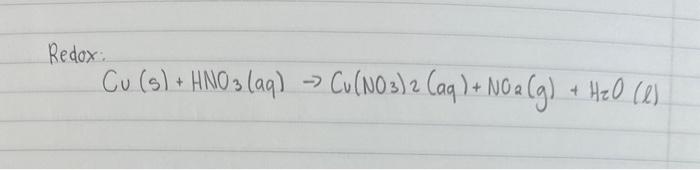 Redox:
Cu (s) + HNO3 (aq) → Cu(NO3)2 (aq) + NO2 (g) + H2O (l)